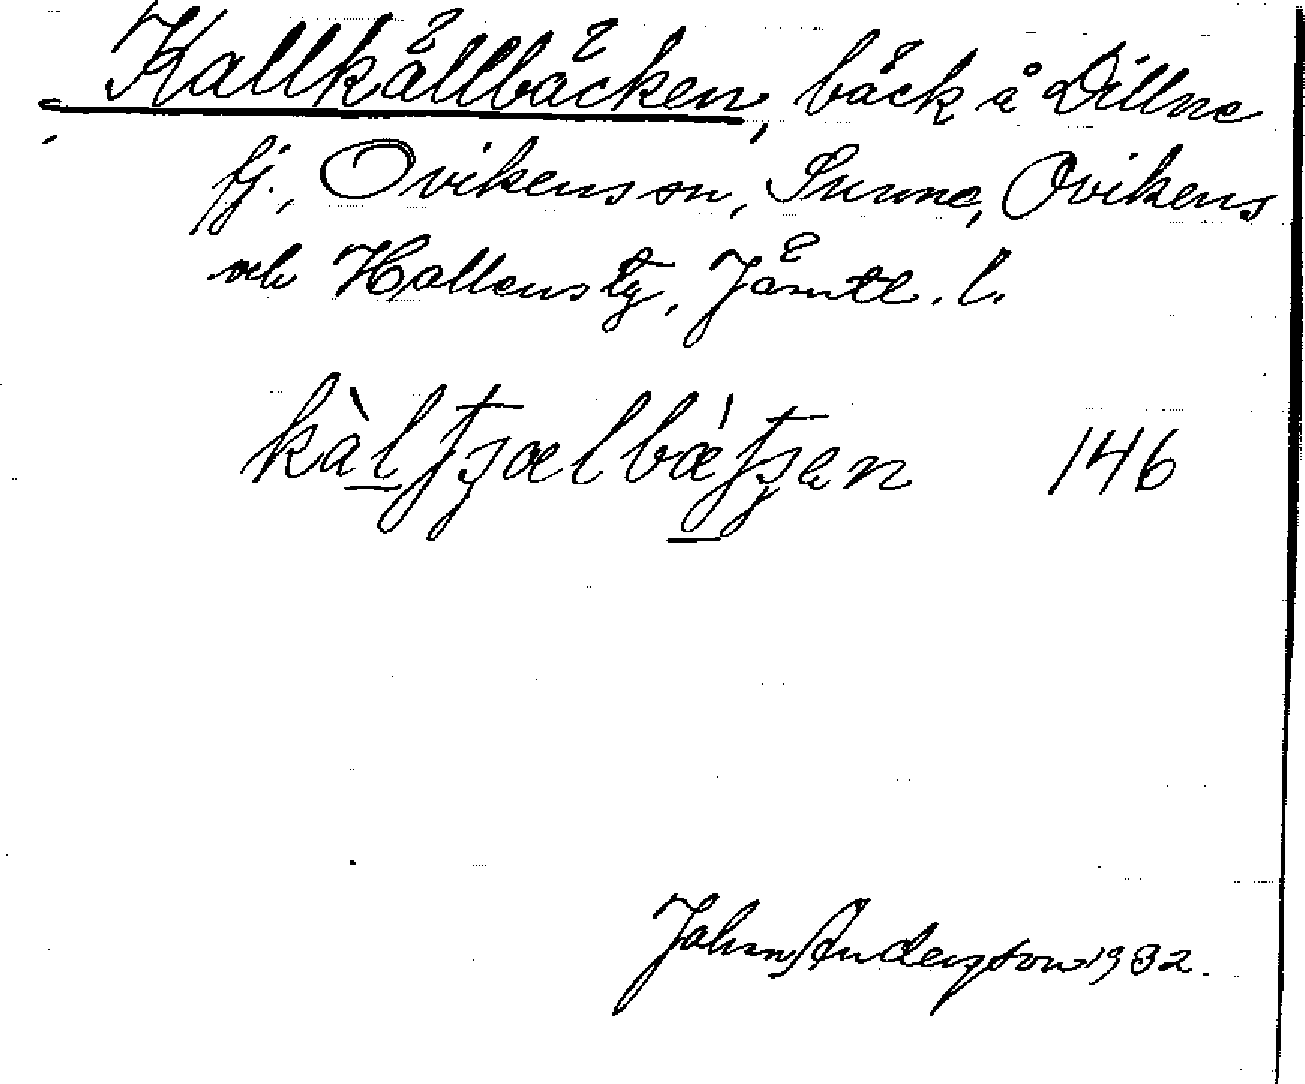 Kallkällbäcken, bäck å Dillne
fj., Ovikens sn, Sunne, Ovikens
och Hallens tg, Jämtl. l.
146
John Anderson 1932.